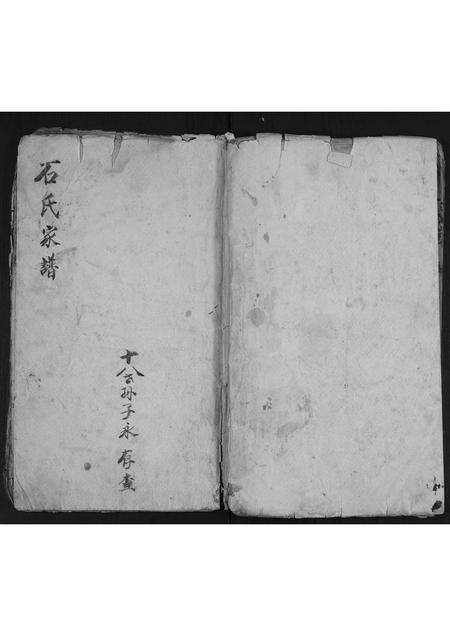 石氏家譜
十八世孙子永存查